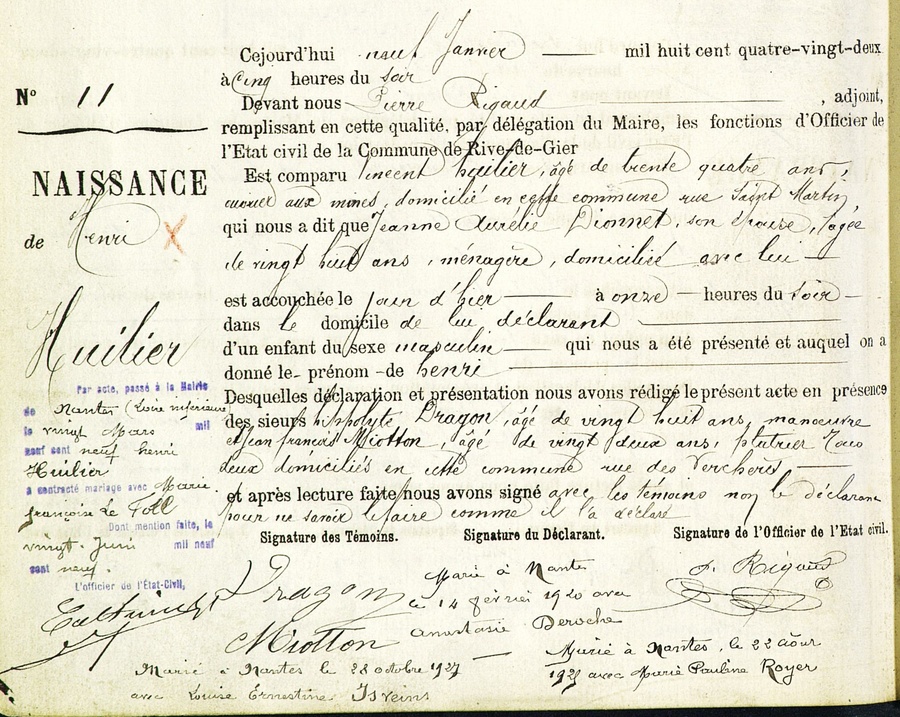 N° 11
NAISSANCE
de Henri X
Huilier
Par acte, passé à la Mairie
de Nantes (Loire inférieure
le vingt Mars mil
neuf cent neuf henri
Huilier
a contracté mariage avec Marie
françoise Le Toll
Dont mention faite, le
vingt. Juin mil neuf
cent neuf.
L'officier de l'État-Civil,
Cejourd'hui neuf Janvier mil huit cent quatre-vingt-deux
à Cinq heures du soir
Devant nous Pierre Rigaud, adjoint,
remplissant en cette qualité, par délégation du Maire, les fonctions d'Officier de
l'Etat civil de la Commune de Rive-de-Gier
Est comparu Vincent huilier, âgé de trente quatre ans,
aux mines, domicilié en cette commune rue Saint Martin
qui nous a dit que Jeanne Aurélie Dionnet, son épouse, âgée
de vingt huit ans, ménagère, domiciliée avec lui
est accouchée le jour d'hier à onze heures du soir
dans le domicile de lui déclarant
d'un enfant du sexe masculin qui nous a été présenté et auquel on a
donné le prénom de henri
Desquelles déclaration et présentation nous avons rédigé le présent acte en présence
des sieurs hippolyte Dragon, âgé de vingt huit ans, manœuvre
et Jean francois Miotton, âgé de vingt deux ans, platrier Tous
deux domiciliés en cette commune rue des Verchères
et après lecture faite nous avons signé avec les témoins non le déclarant
pour ne savoir le faire comme il l'a déclaré
Signature des Témoins. Signature du Déclarant. Signature de l'Officier de l'Etat civil.
Dragon
Miotton
P. Rigaud
Marié à Nantes
le 14 février 1920 avec
Anastasie Deroche
Marié à Nantes, le 22 août
1925 avec Marie Pauline Royer
Marié à Nantes le 28 octobre 1927
avec Louise Ernestine Isveins